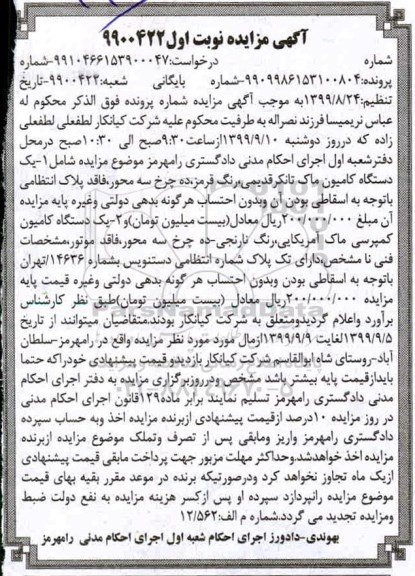 آگهی مزایده نوبت اول۹۹۰۰۴۲۲
شماره درخواست:۹۹۱۰۴۶۶۱۵۳۹۰۰۰۴۷-شماره
پرونده:۹۹۰۹۹۸۶۱۵۳۱۰۰۸۰۴-شماره بایگانی شعبه:۹۹۰۰۴۲۲-تاریخ
تنظیم:۱۳۹۹/۸/۲۴به موجب آگهی مزایده شماره پرونده فوق الذکر محکوم له
عباس نریمیسا فرزند نصراله به طرفیت محکوم علیه شرکت کیانکار لطفعلی لطفعلی
زاده که درروز دوشنبه ۱۳۹۹/۹/۱۰ازساعت۹:۳۰صبح الی ۱۰:۳۰صبح درمحل
دفترشعبه اول اجرای احکام مدنی دادگستری رامهرمز موضوع مزایده شامل۱-یک
دستگاه کامیون ماک تانک‌قدیمی،رنگ قرمز،ده چرخ سه محور،فاقد پلاک انتظامی
باتوجه به اسقاطی بودن آن وبدون احتساب هرگونه بدهی دولتی وغیره پایه مزایده
آن مبلغ ۲۰۰/۰۰۰/۰۰۰ریال معادل(بیست میلیون تومان)و۲-یک دستگاه کامیون
کمپرسی ماک آمریکایی،رنگ نارنجی-ده چرخ سه محور،فاقد موتور،مشخصات
فنی نا مشخص،دارای تک پلاک شماره انتظامی دستنویس بشماره ۱۴۶۳۶/تهران
باتوجه به اسقاطی بودن وبدون احتساب هر گونه بدهی دولتی وغیره قیمت پایه
مزایده ۲۰۰/۰۰۰/۰۰۰ریال معادل (بیست میلیون تومان)طبق نظر کارشناس
برآورد واعلام گردیدومتعلق به شرکت کیانکار بودند.متقاضیان میتوانند از تاریخ
۱۳۹۹/۹/۵لغایت ۱۳۹۹/۹/۹ازمال مورد مورد نظر مزایده واقع در رامهرمز-سلطان
آباد-روستای شاه ابوالقاسم شرکت کیانکار بازدیدو قیمت پیشنهادی خودراکه حتما
بایدازقیمت پایه بیشتر باشد مشخص ودرروزبرگزاری مزایده به دفتر اجرای احکام
مدنی دادگستری رامهرمز تسلیم نمایند برابر ماده۱۲۹قانون اجرای احکام مدنی
در روز مزایده ۱۰درصد ازقیمت پیشنهادی ازبرنده مزایده اخذ وبه حساب سپرده
دادگستری رامهرمز واریز ومابقی پس از تصرف وتملک موضوع مزایده ازبرنده
مزایده اخذ خواهدشد.وحداکثر مهلت مزبور جهت پرداخت مابقی قیمت پیشنهادی
ازیک ماه تجاوز نخواهد کرد ودرصورتیکه برنده در موعد مقرر بقیه بهای قیمت
موضوع مزایده رانپردازد سپرده او پس ازکسر هزینه مزایده به نفع دولت ضبط
ومزایده تجدید می گردد.شماره م الف:۱۲/۵۶۲
بهوندی-دادورز اجرای احکام شعبه اول اجرای احکام مدنی رامهرمز